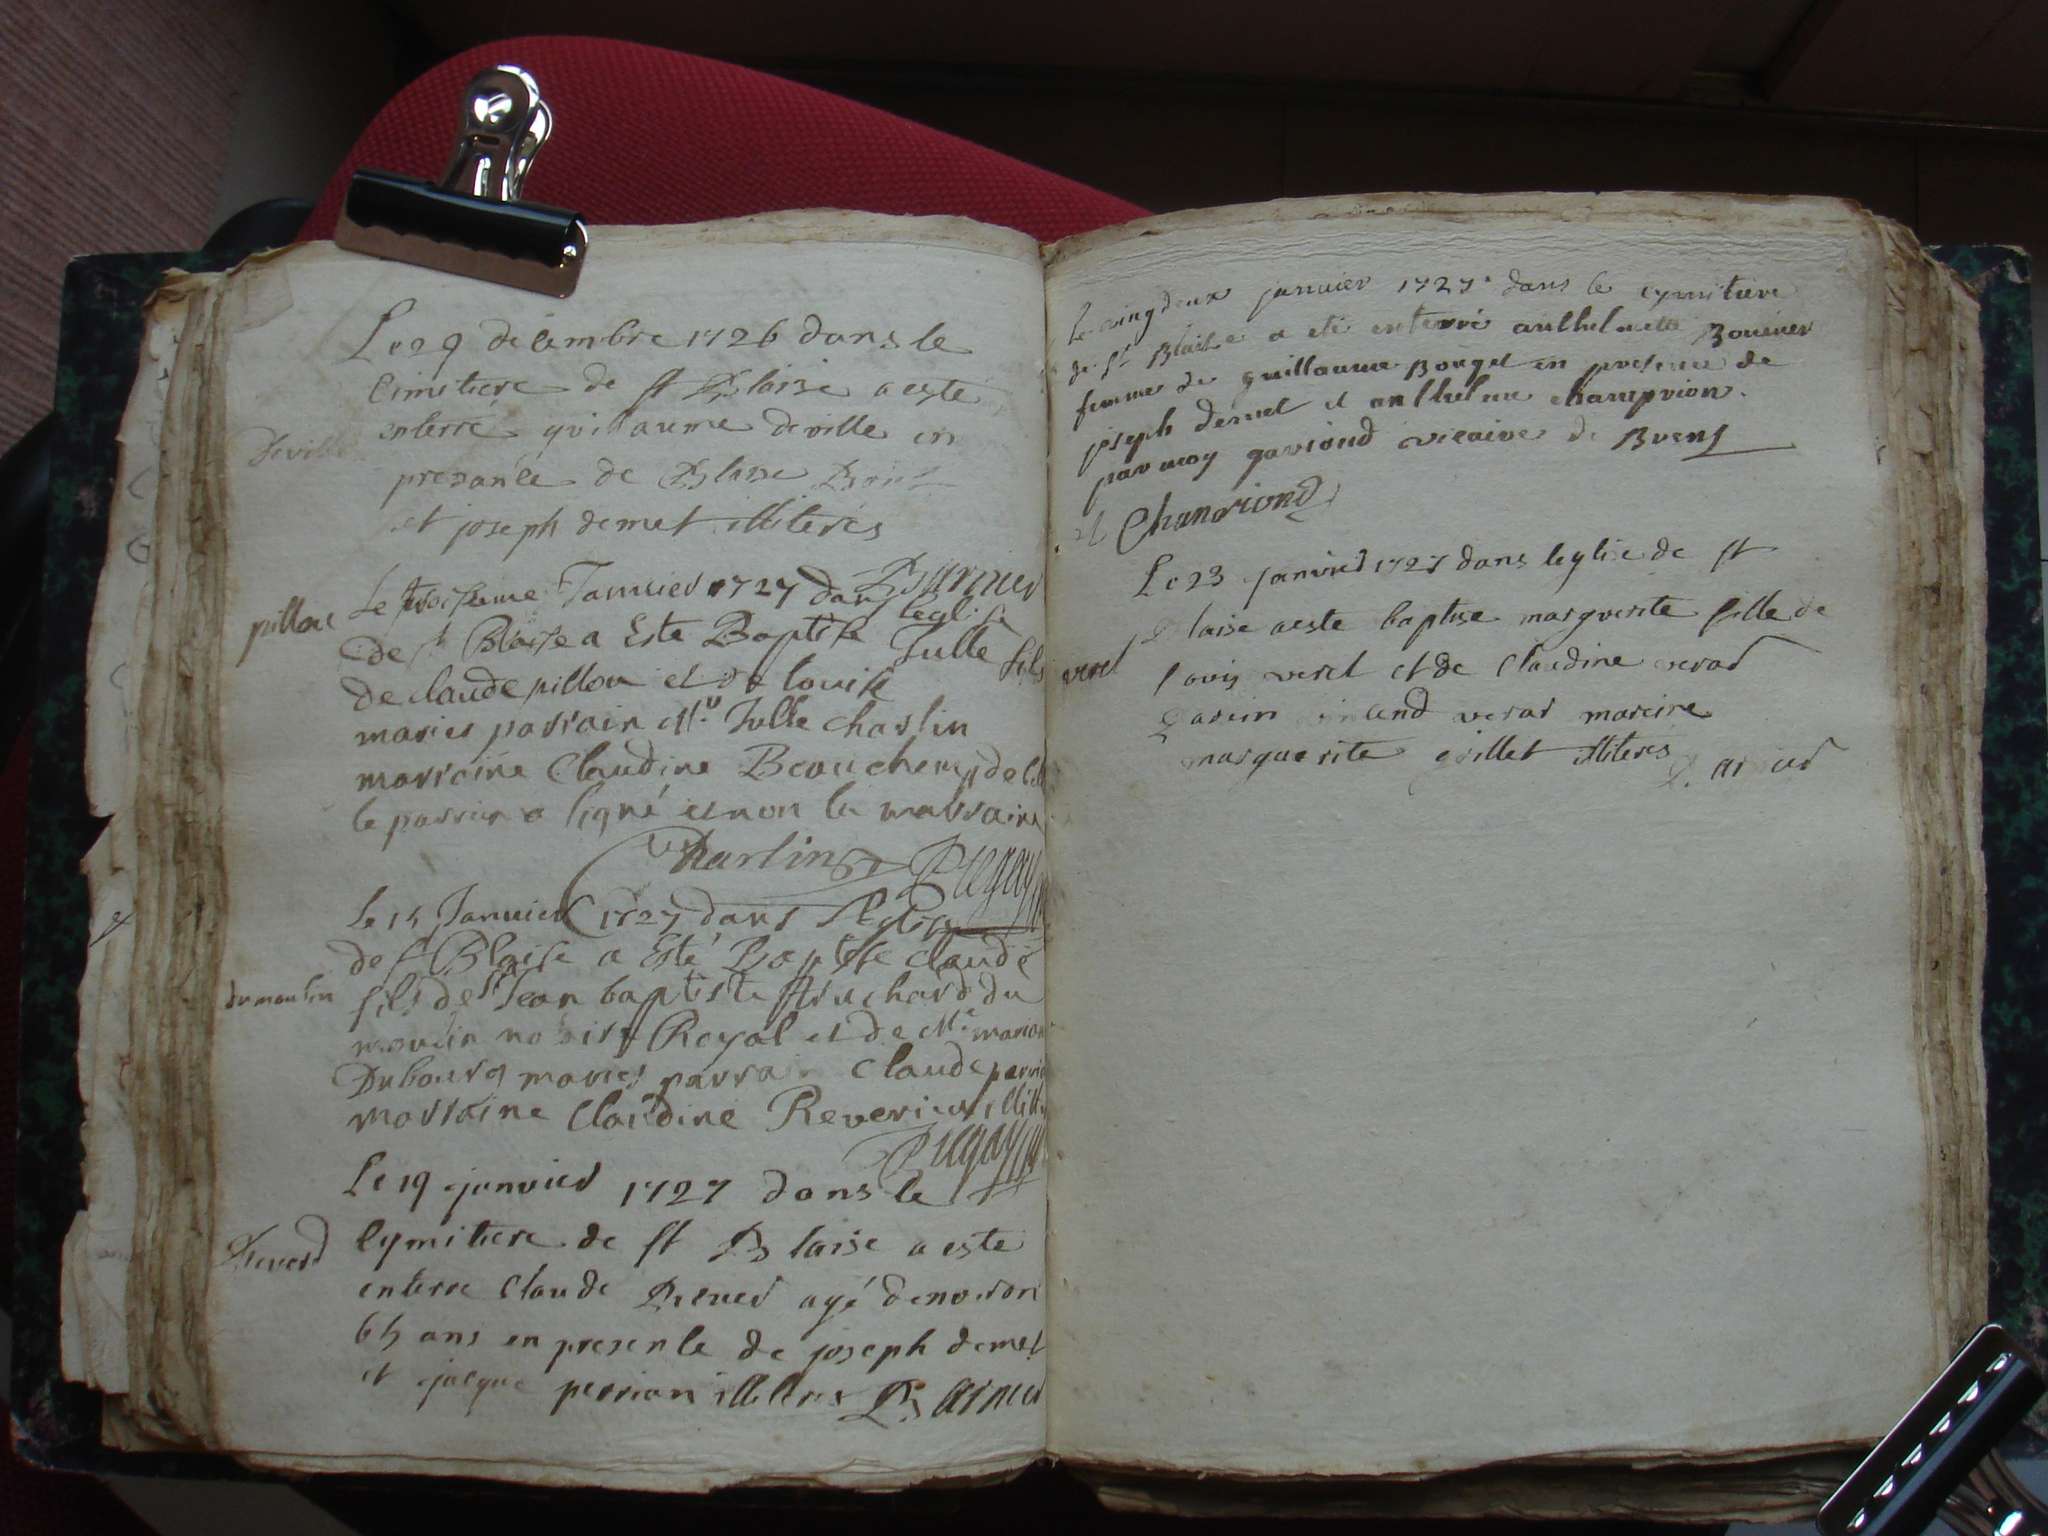 Le 29 décembre 1726 dans le
Cimitiere de st Blaise a esté
enterré guillaume deville en
Deville
presance de Blaise
et joseph demet illiteres
Barnier
pillou
Le troisieme Januier 1727 dans leglise
de st Blaise a Esté Baptise Julle fils
de claude pillou et de louise
maries parrain Mr Julle Charlin
marraine Claudine Beauchemp de
le parrain a signé et non la marraine
Charlin
Le 15 Januier 1727 dans leglise
de st Blaise a Esté Baptise claude
dumoulin
fils de sr Jean baptiste Bruchard du
moulin notaire Royal et de Me marion
Dubourg maries parrain Claude
marraine Claudine
Le 19 janvier 1727 dans le
cymitiere de st Blaise a esté
enterré Claude agé denviron
65 ans en presence de joseph demet
et jacque perrian illiteres Barnier
Le vingdeux janvier 1727 dans le cymitiere
de St Blaise a eté enterré anthelmette
femme de guillaume Bouget en presence de
joseph demet et anthelme champrion
par moy gaviond vicaire de Brens
Chanrion
Le 23 janvier 1727 dans leglise de st
Blaise a esté baptise marguerite fille de
verel
Louis verel et de Claudine verar
parein verar mareine
marguerite grillet illiteres Barnier